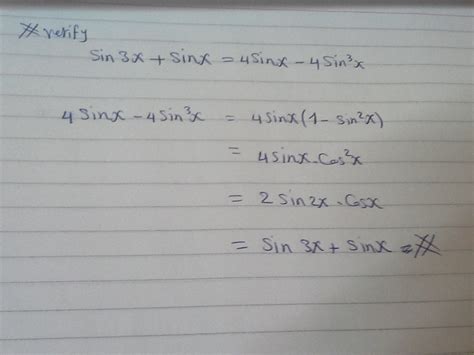 # verify
Sin 3x + Sinx = 4Sinx - 4Sin³x
4 Sinx - 4Sin³x = 4Sinx(1 - Sin²x)
= 4Sinx · Cos²x
= 2 Sin2x · Cosx
= Sin 3x + Sinx = #